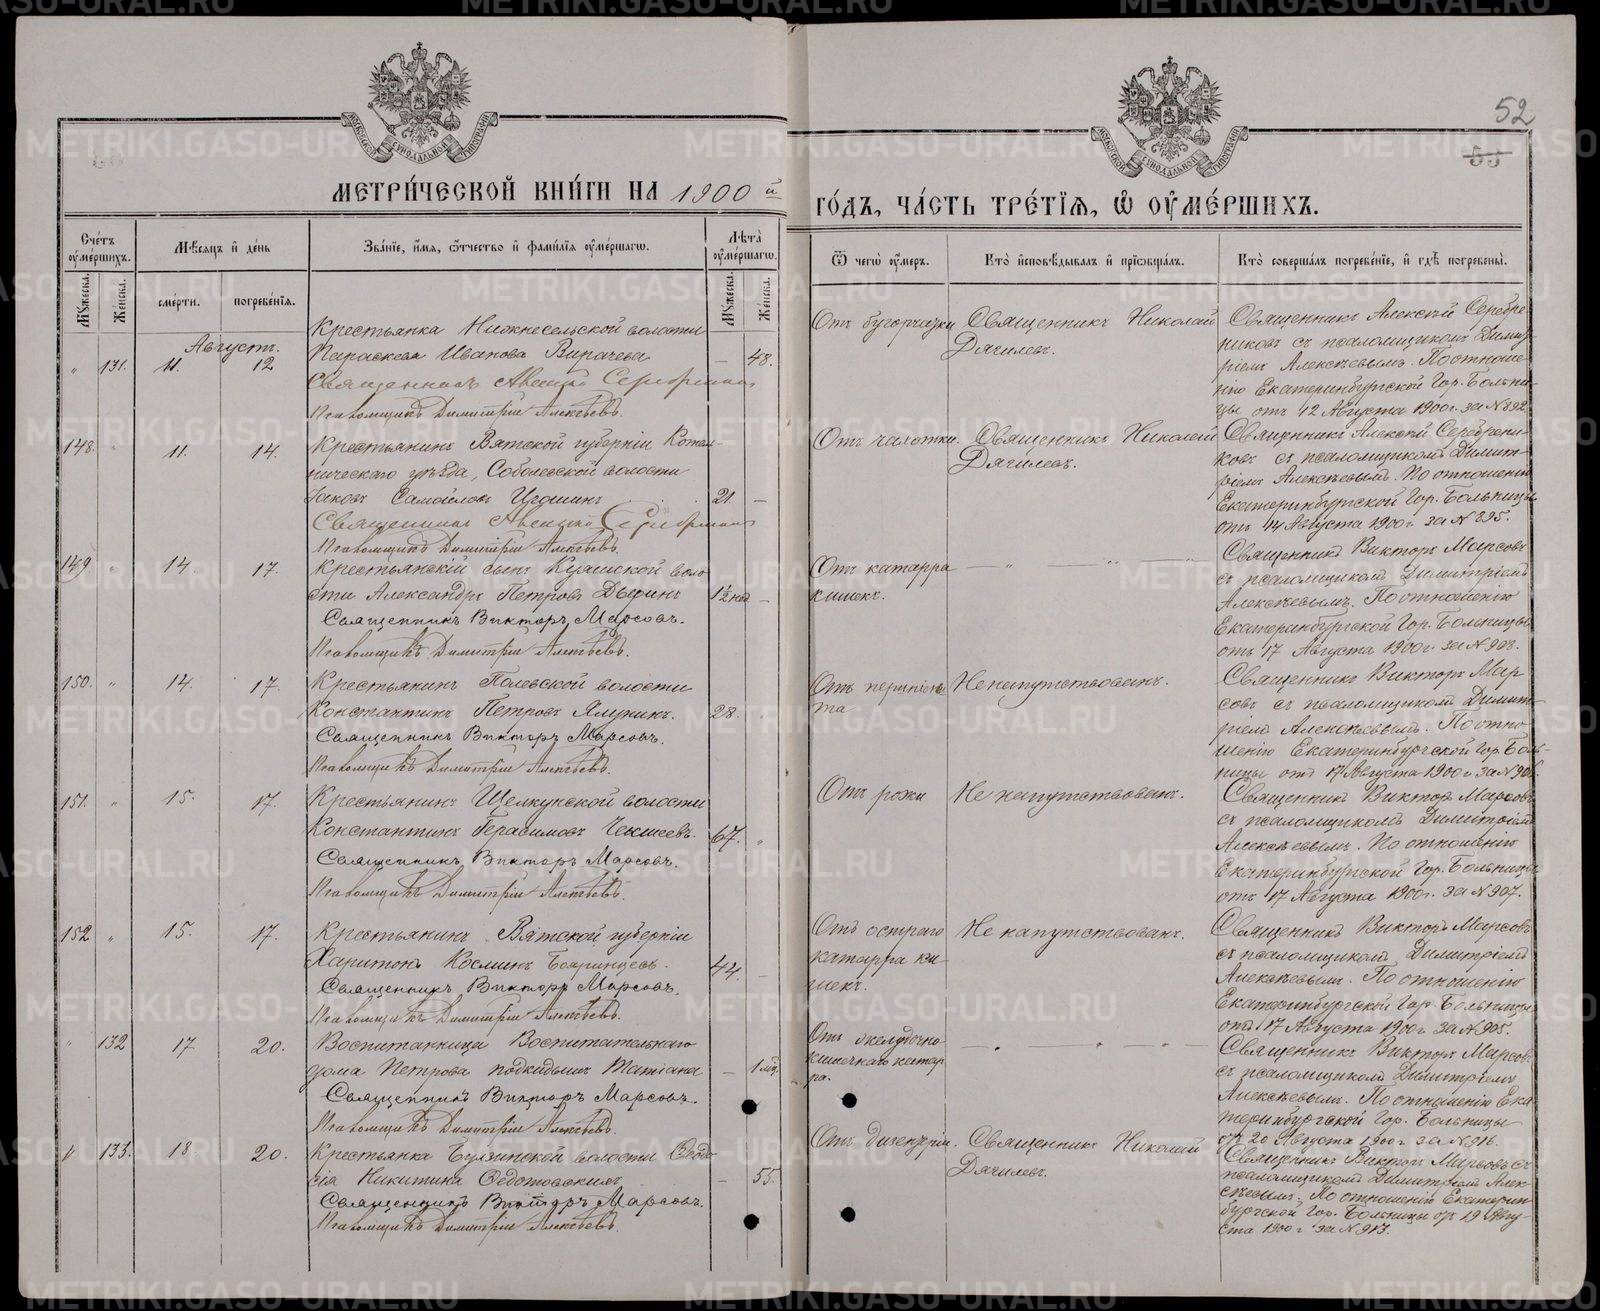 52
55
МЕТРИ́ЧЕСКОЙ КНИ́ГИ НА 1900 й
ГО́ДЪ, ЧА́СТЬ ТРЕ́ТІЯ, Ѡ ОУМЕ́РШИХЪ.
Сче́тъ оуме́ршихъ.
Мꙋжеска.
Же́нска.
Мѣсяцъ и де́нь
сме́рти.
погребе́нія.
Зва́ніе, и́мя, ѻ́тчество и фами́лія оуме́ршагѡ.
Лѣта̀ оуме́ршагѡ.
Мꙋжеска.
Же́нска.
Ѿ чегѡ̀ оу́меръ.
Кто̀ и҆сповѣ́дывалъ и прїѡбща́лъ.
Кто̀ соверша́лъ погребе́ніе, и гдѣ̀ погребены̀.
Августъ.
" 131. 11. 12
Крестьянка Нижнесельской волости
Параскева Иванова Вирачева — 48.
Священникъ Алексій Серебрениковъ
Псаломщикъ Димитрій Алексѣевъ.
Отъ бугорчатки
Священникъ Николай
Дягилевъ.
Священникъ Алексѣй Серебре-
никовъ съ псаломщикомъ Димит-
ріемъ Алексѣевымъ. По отноше-
нію Екатеринбургской Гор. Больни-
цы отъ 12 Августа 1900 г. за N 892.
148. " 11. 14.
Крестьянинъ Вятской губерніи Котель-
ническаго уѣзда, Соболевской волости
Іаковъ Самойловъ Игошинъ 21. —
Священникъ Алексій Серебрениковъ
Псаломщикъ Димитрій Алексѣевъ.
Отъ чахотки.
Священникъ Николай
Дягилевъ.
Священникъ Алексѣй Серебрени-
ковъ съ псаломщикомъ Димит-
ріемъ Алексѣевымъ. По отношенію
Екатеринбургской Гор. Больницы
отъ 14 Августа 1900 г. за N 895.
149 " 14 17.
Крестьянскій сынъ Куяшской воло-
сти Александръ Петровъ 1½ нед —
Священникъ Викторъ Марсовъ.
Псаломщикъ Димитрій Алексѣевъ.
Отъ катарра
кишекъ.
— " " —
Священникъ Викторъ Марсовъ
съ псаломщикомъ Димитріемъ
Алексѣевымъ. По отношенію
Екатеринбургской Гор. Больницы
отъ 17 Августа 1900 г. за N 908.
150. " 14. 17.
Крестьянинъ Полевской волости
Константинъ Петровъ Ялунинъ. 28.
Священникъ Викторъ Марсовъ.
Псаломщикъ Димитрій Алексѣевъ.
Не напутствованъ.
Священникъ Викторъ Мар-
совъ съ псаломщикомъ Димит-
ріемъ Алексѣевымъ. По отно-
шенію Екатеринбургской Гор. Боль-
ницы отъ 17 Августа 1900 г за N 906.
151. " 15. 17.
Крестьянинъ Щелкунской волости
Константинъ Герасимовъ 67. "
Священникъ Викторъ Марсовъ.
Псаломщикъ Димитрій Алексѣевъ.
Отъ рожи
Не напутствованъ.
Священникъ Викторъ Марсовъ
съ псаломщикомъ Димитріемъ
Алексѣевымъ. По отношенію
Екатеринбургской Гор. Больницы
отъ 17 Августа 1900 г. за N 907.
152 " 15. 17.
Крестьянинъ Вятской губерніи
Харитонъ Косминъ Бояринцевъ. 44. —
Священникъ Викторъ Марсовъ.
Псаломщикъ Димитрій Алексѣевъ.
Отъ остраго
катарра ки-
шекъ.
Не напутствованъ.
Священникъ Викторъ Марсовъ
съ псаломщикомъ Димитріемъ
Алексѣевымъ. По отношенію
Екатеринбургской Гор. Больницы
отъ 17 Августа 1900 г. за N 905.
" 132 17 20.
Воспитанница Воспитательнаго
дома Петрова подкидышъ Татіана — 1 мѣс.
Священникъ Викторъ Марсовъ.
Псаломщикъ Димитрій Алексѣевъ.
Отъ желудочно-
кишечнаго катар-
ра.
Священникъ Викторъ Марсовъ
съ псаломщикомъ Димитріемъ
Алексѣевымъ. По отношенію Ека-
теринбургской Гор. Больницы
отъ 20 Августа 1900 г за N 916.
" 133. 18 20.
Крестьянка Булзинской волости Ѳеодо-
сія Никитина Ѳедотовскихъ — 55.
Священникъ Викторъ Марсовъ.
Псаломщикъ Димитрій Алексѣевъ.
Отъ дизентріи.
Священникъ Николай
Дягилевъ.
Священникъ Викторъ Марсовъ съ
псаломщикомъ Димитріемъ Алек-
сѣевымъ. По отношенію Екатерин-
бургской Гор. Больницы отъ 19 Авгу-
ста 1900 г за N 913.
METRIKI.GASO-URAL.RU